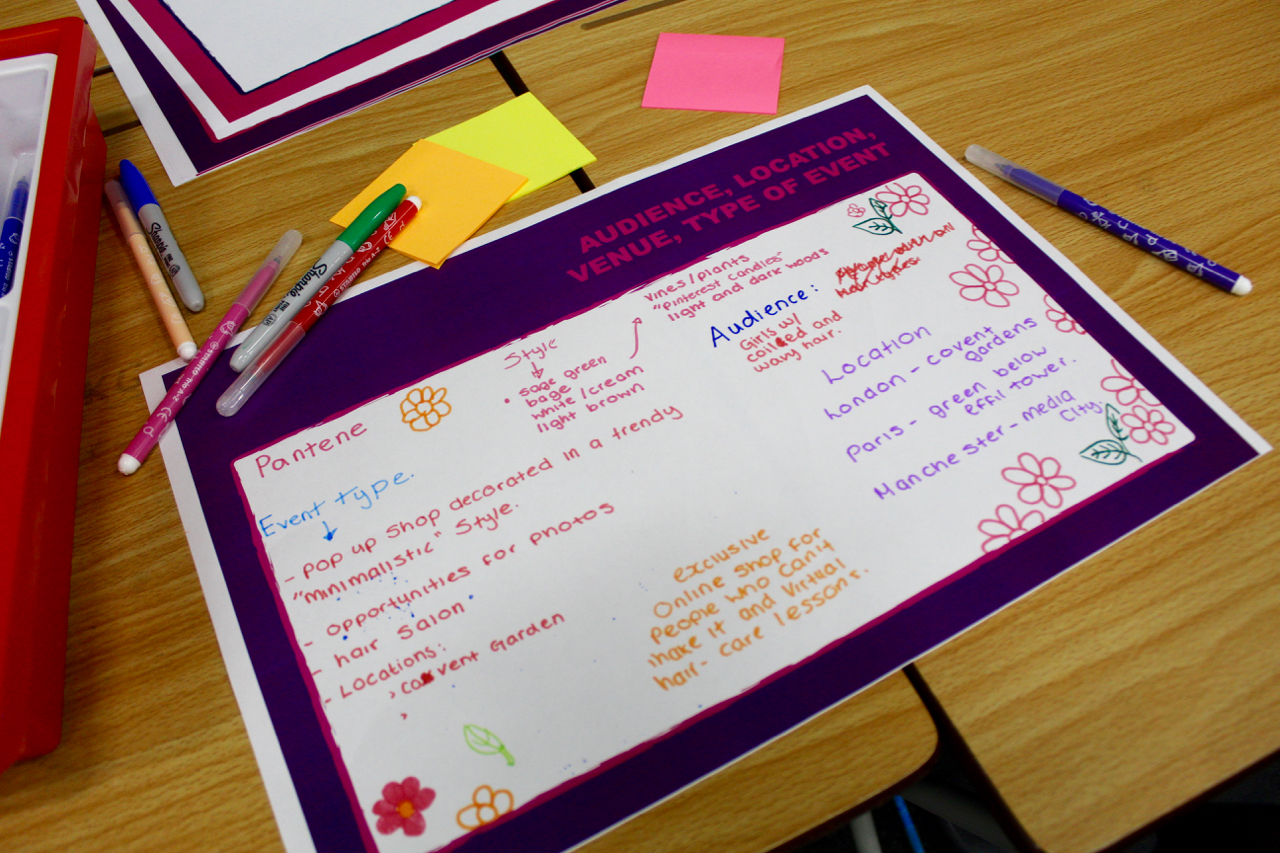 AUDIENCE, LOCATION,
VENUE, TYPE OF EVENT
Pantene
Event type.
- Pop up shop decorated in a trendy
"minimalistic" Style.
- opportunities for photos
- hair Salon
- Locations:
› covent Garden
›
Style
• sage green
bage
white/cream
light brown
vines/plants
"pinterest candles"
light and dark woods
Audience:
Girls w/
coiled and
wavy hair.
Location
London - covent
gardens
Paris - green below
effil tower.
Manchester - media
city.
exclusive
Online shop for
people who can't
make it and virtual
hair-care lessons.
Sharpie
Sharpie